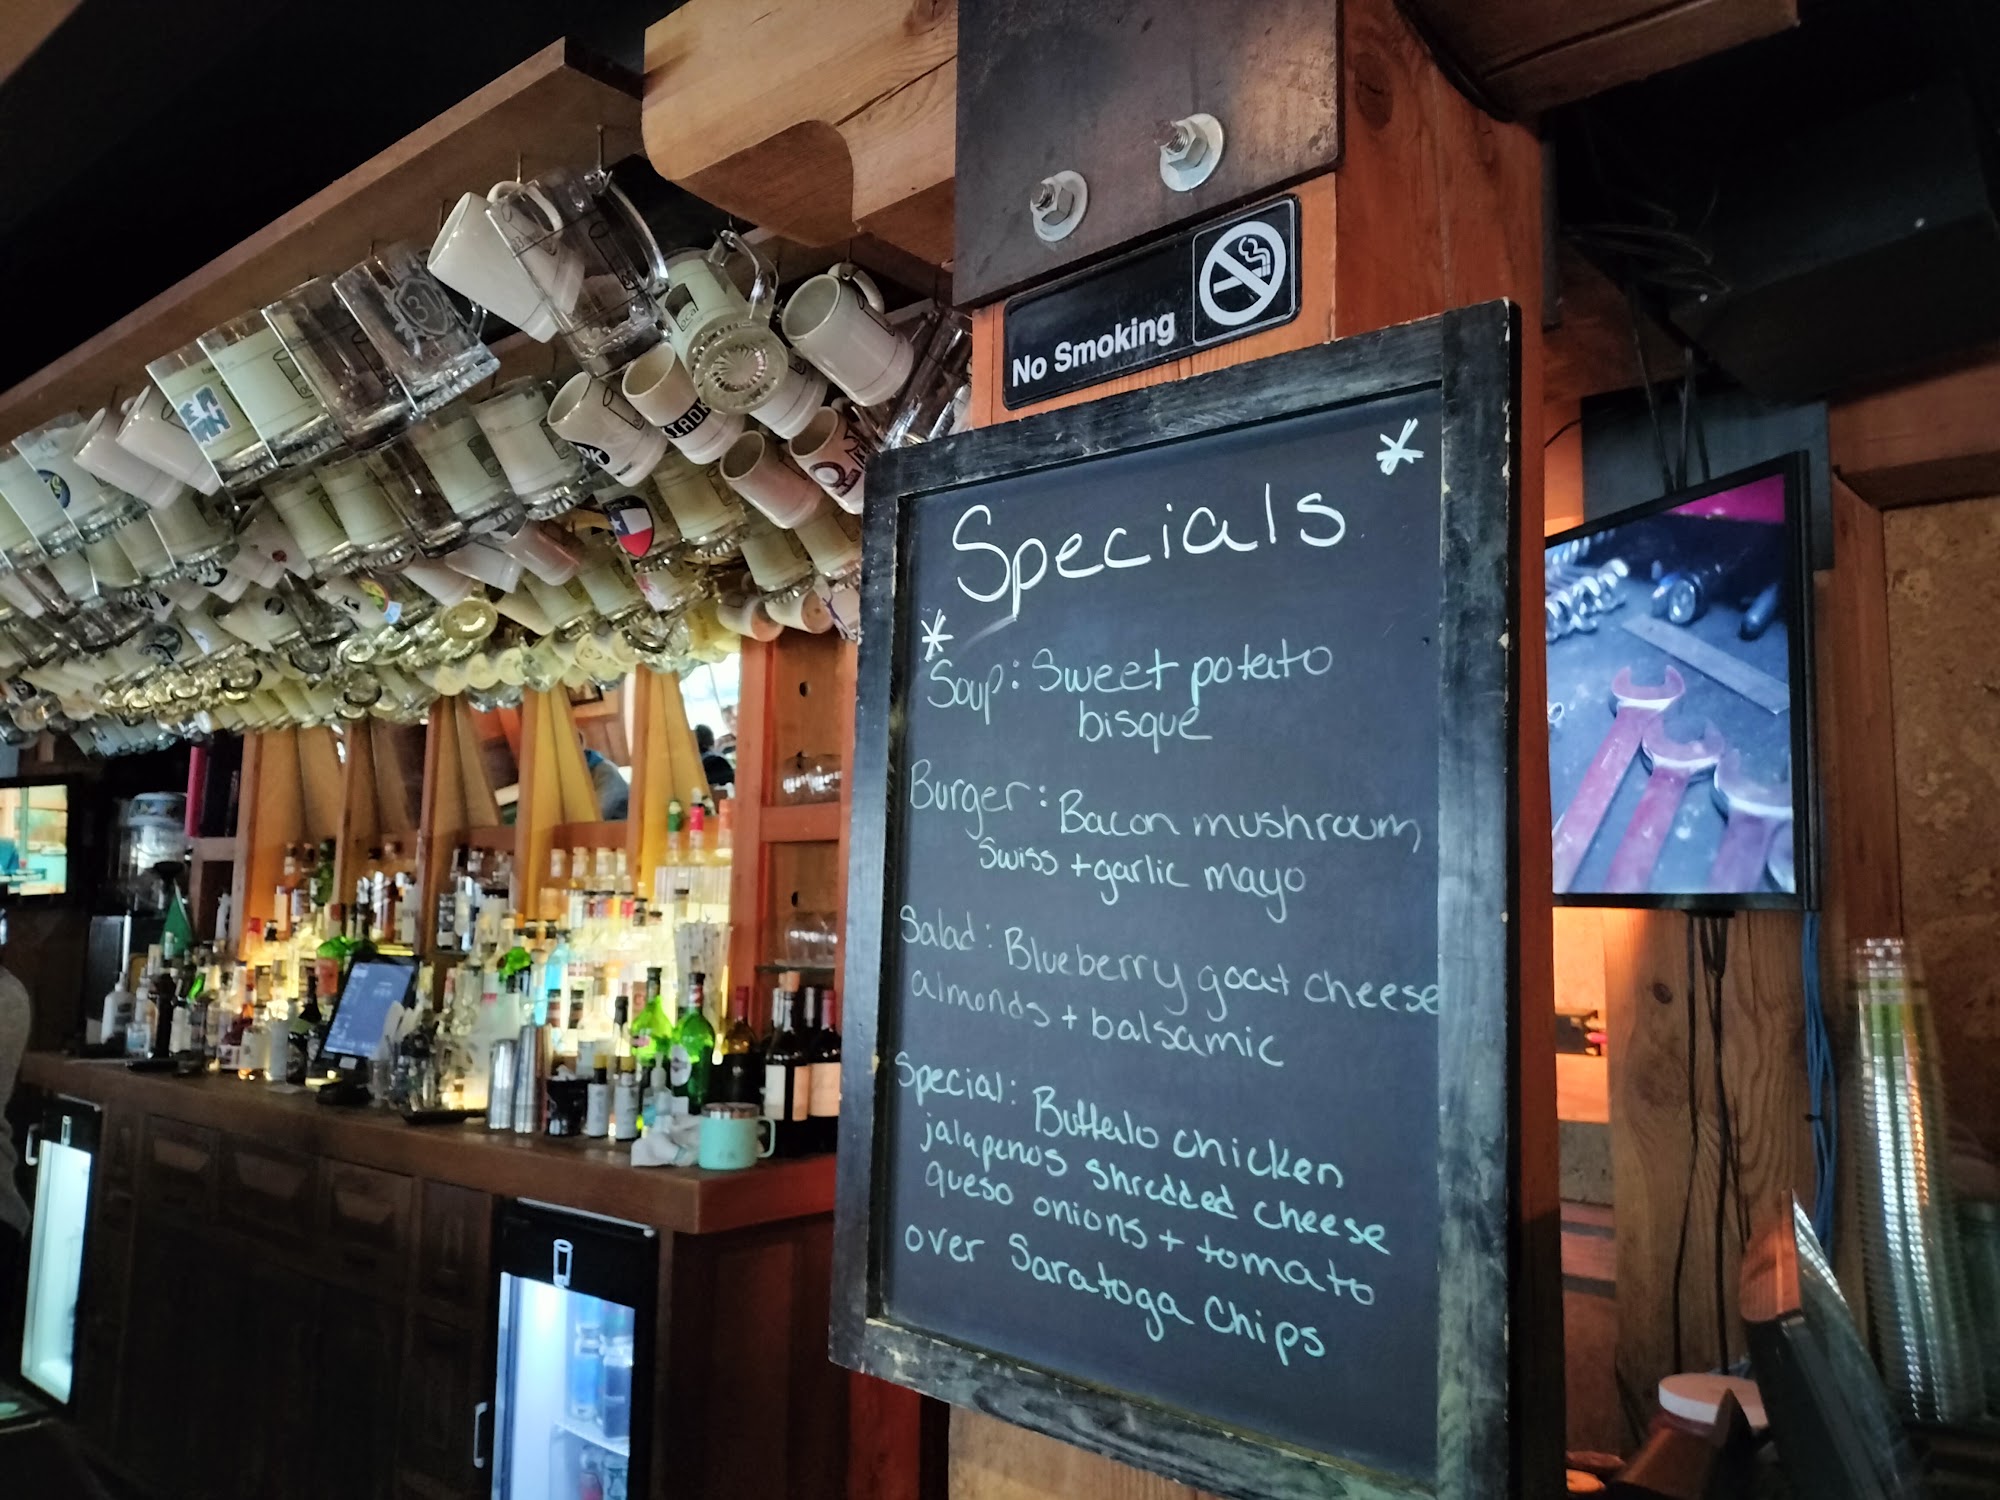 No Smoking
Specials
Soup: Sweet potato
bisque
Burger: Bacon mushroom,
Swiss + garlic mayo
Salad: Blueberry goat cheese
almonds + balsamic
Special: Buffalo chicken
jalapenos shredded cheese
queso onions + tomato
over Saratoga Chips
31